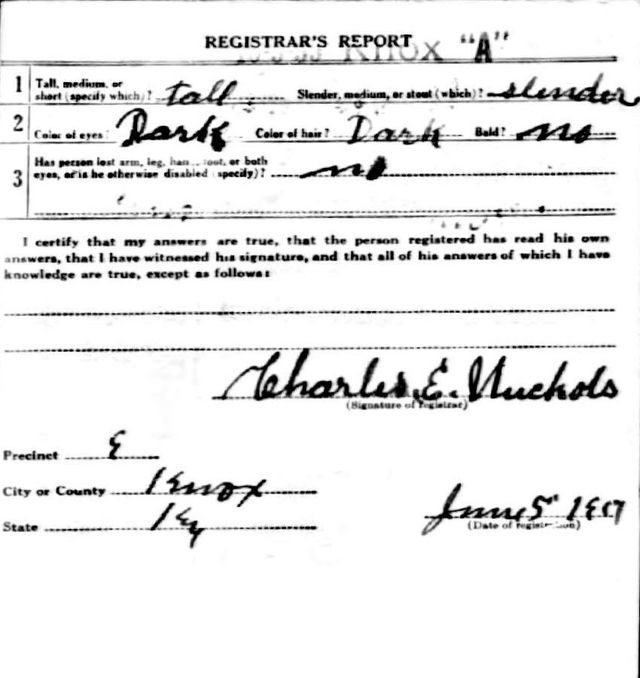 REGISTRAR'S REPORT KNOX "A"
1 Tall, medium, or short (specify which)? tall Slender, medium, or stout (which)? slender
2 Color of eyes? Dark Color of hair? Dark Bald? no
3 Has person lost arm, leg, hand, foot, or both eyes, or is he otherwise disabled (specify)? no
I certify that my answers are true, that the person registered has read his own
answers, that I have witnessed his signature, and that all of his answers of which I have
knowledge are true, except as follows:
Charles E. Nuckols
(Signature of registrar)
Precinct E
City or County Knox
State Ky
June 5 1917
(Date of registration)